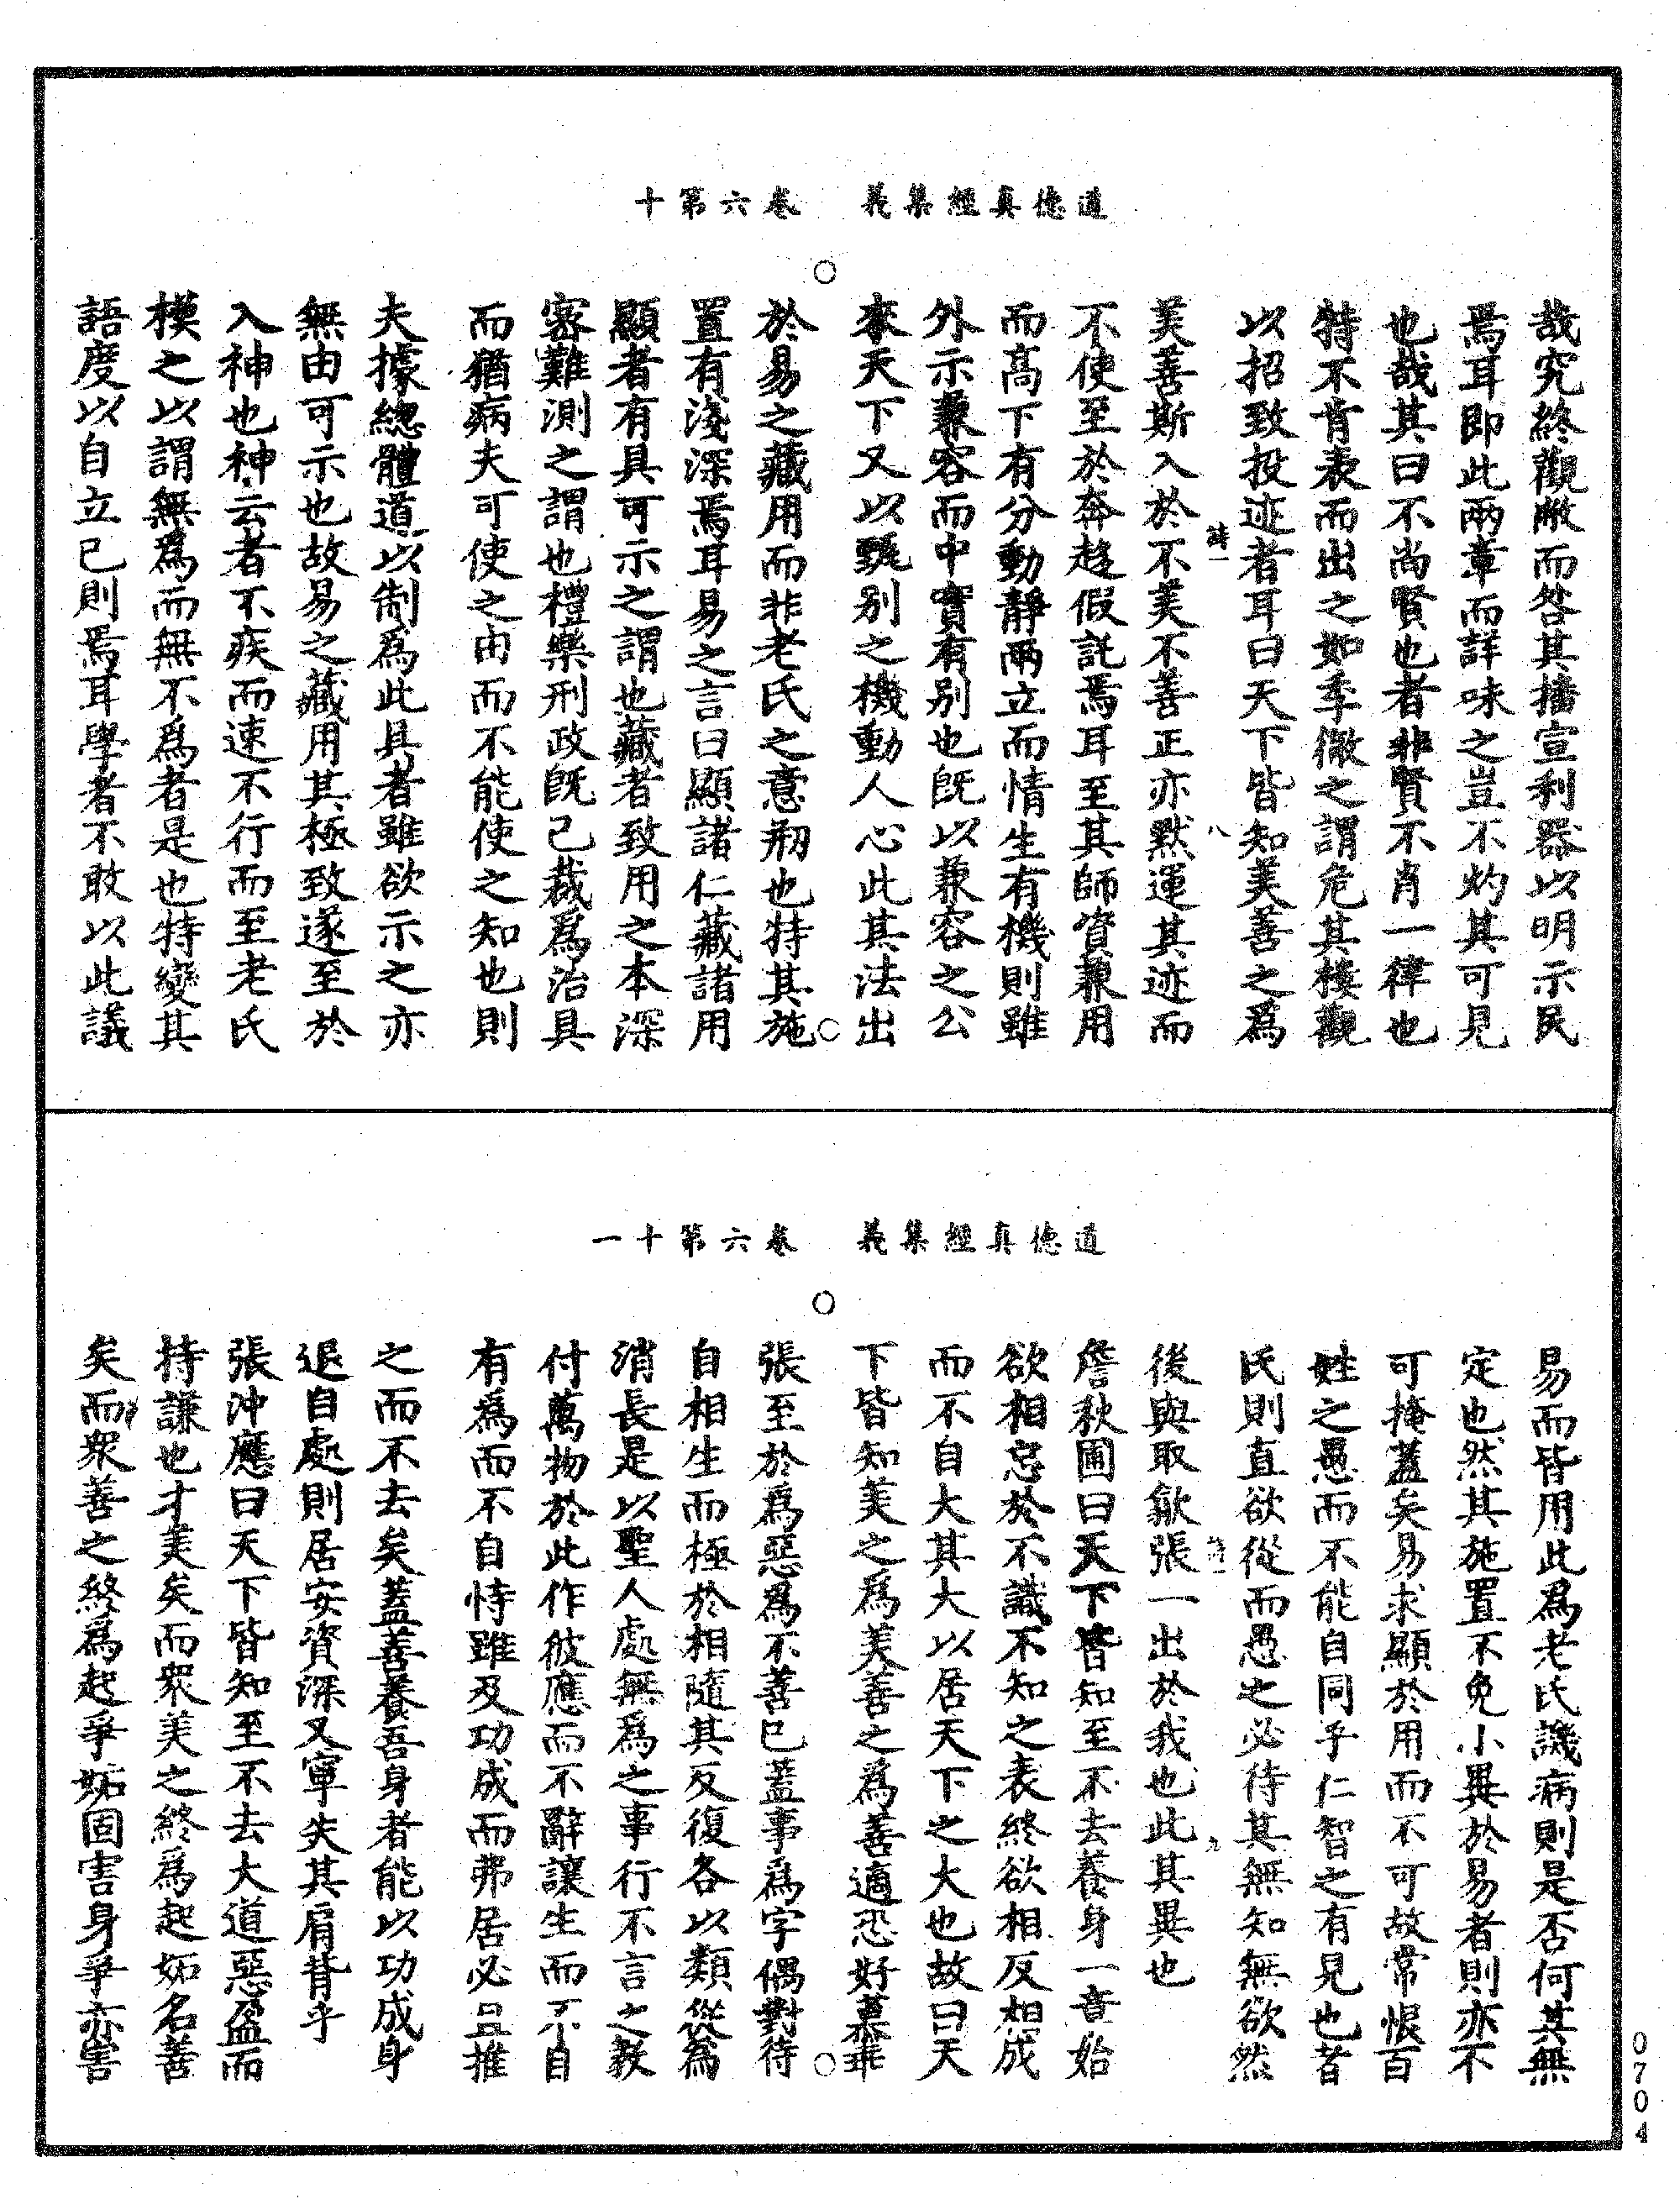 道德真經集義　卷六第十
哉究終觀敝而咎其播宣利器以明示民
焉耳即此兩章而詳味之豈不灼其可見
也哉其曰不尚賢也者非賢不肖一律也
特不肯表而出之如季徹之謂危其樓觀
以招致投迹者耳曰天下皆知美善之為
詩一
八
美善斯入於不美不善正亦默運其迹而
不使至於奔趍假託焉耳至其師資兼用
而髙下有分動靜兩立而情生有機則雖
外示兼容而中實有别也旣以兼容之公
來天下又以甄别之機動人心此其法出
於易之藏用而非老氏之意剏也特其施
置有淺深焉耳易之言曰顯諸仁藏諸用
顯者有具可示之謂也藏者致用之本深
密難測之謂也禮樂刑政旣已裁爲治具
而猶病夫可使之由而不能使之知也則
夫據總體道以制為此具者雖欲示之亦
無由可示也故易之藏用其極致遂至於
入神也神云者不疾而速不行而至老氏
模之以謂無爲而無不爲者是也特變其
語度以自立已則焉耳學者不敢以此議
道德真經集義　卷六第十一
易而皆用此爲老氏譏病則是否何其無
定也然其施置不免小異於易者則亦不
可掩蓋矣易求顯於用而不可故常恨百
姓之愚而不能自同乎仁智之有見也老
氏則直欲從而愚之必待其無知無欲然
九
後與取歙張一出於我也此其異也
詹秋圃曰天下皆知至不去養身一章始
欲相忘於不識不知之表終欲相反相成
而不自大其大以居天下之大也故曰天
下皆知美之爲美善之為善適恐好慕乖
張至於爲惡爲不善已蓋事爲字偶對待
自相生而極於相隨其反復各以類從為
消長是以聖人處無爲之事行不言之教
付萬物於此作彼應而不辭讓生而不自
有爲而不自恃雖及功成而弗居必且推
之而不去矣蓋善養吾身者能以功成身
退自處則居安資深又寧失其肩背乎
張沖應曰天下皆知至不去大道惡盈而
持謙也才美矣而衆美之終爲起妬名善
矣而衆善之終爲起爭妬固害身爭亦害
0704